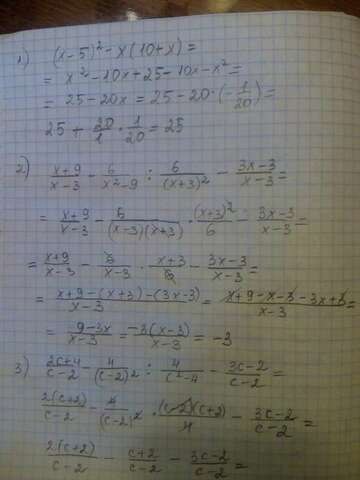 1) (x-5)² - x(10+x) =
= x² - 10x + 25 - 10x - x² =
= 25 - 20x = 25 - 20·(-1/20) =
25 + 20/1 · 1/20 = 25
2) (x+9)/(x-3) - 6/(x²-9) : 6/(x+3)² - (3x-3)/(x-3) =
= (x+9)/(x-3) - 6/((x-3)(x+3)) · (x+3)²/6 - (3x-3)/(x-3) =
= (x+9)/(x-3) - 6/(x-3) · (x+3)/6 - (3x-3)/(x-3) =
= (x+9-(x+3)-(3x-3))/(x-3) = (x+9-x-3-3x+3)/(x-3) =
= (9-3x)/(x-3) = -3(x-3)/(x-3) = -3
3) (2c+4)/(c-2) - 4/(c-2)² : 4/(c²-4) - (3c-2)/(c-2) =
2(c+2)/(c-2) - 4/(c-2)² · (c-2)(c+2)/4 - (3c-2)/(c-2) =
2(c+2)/(c-2) - (c+2)/(c-2) - (3c-2)/(c-2) =